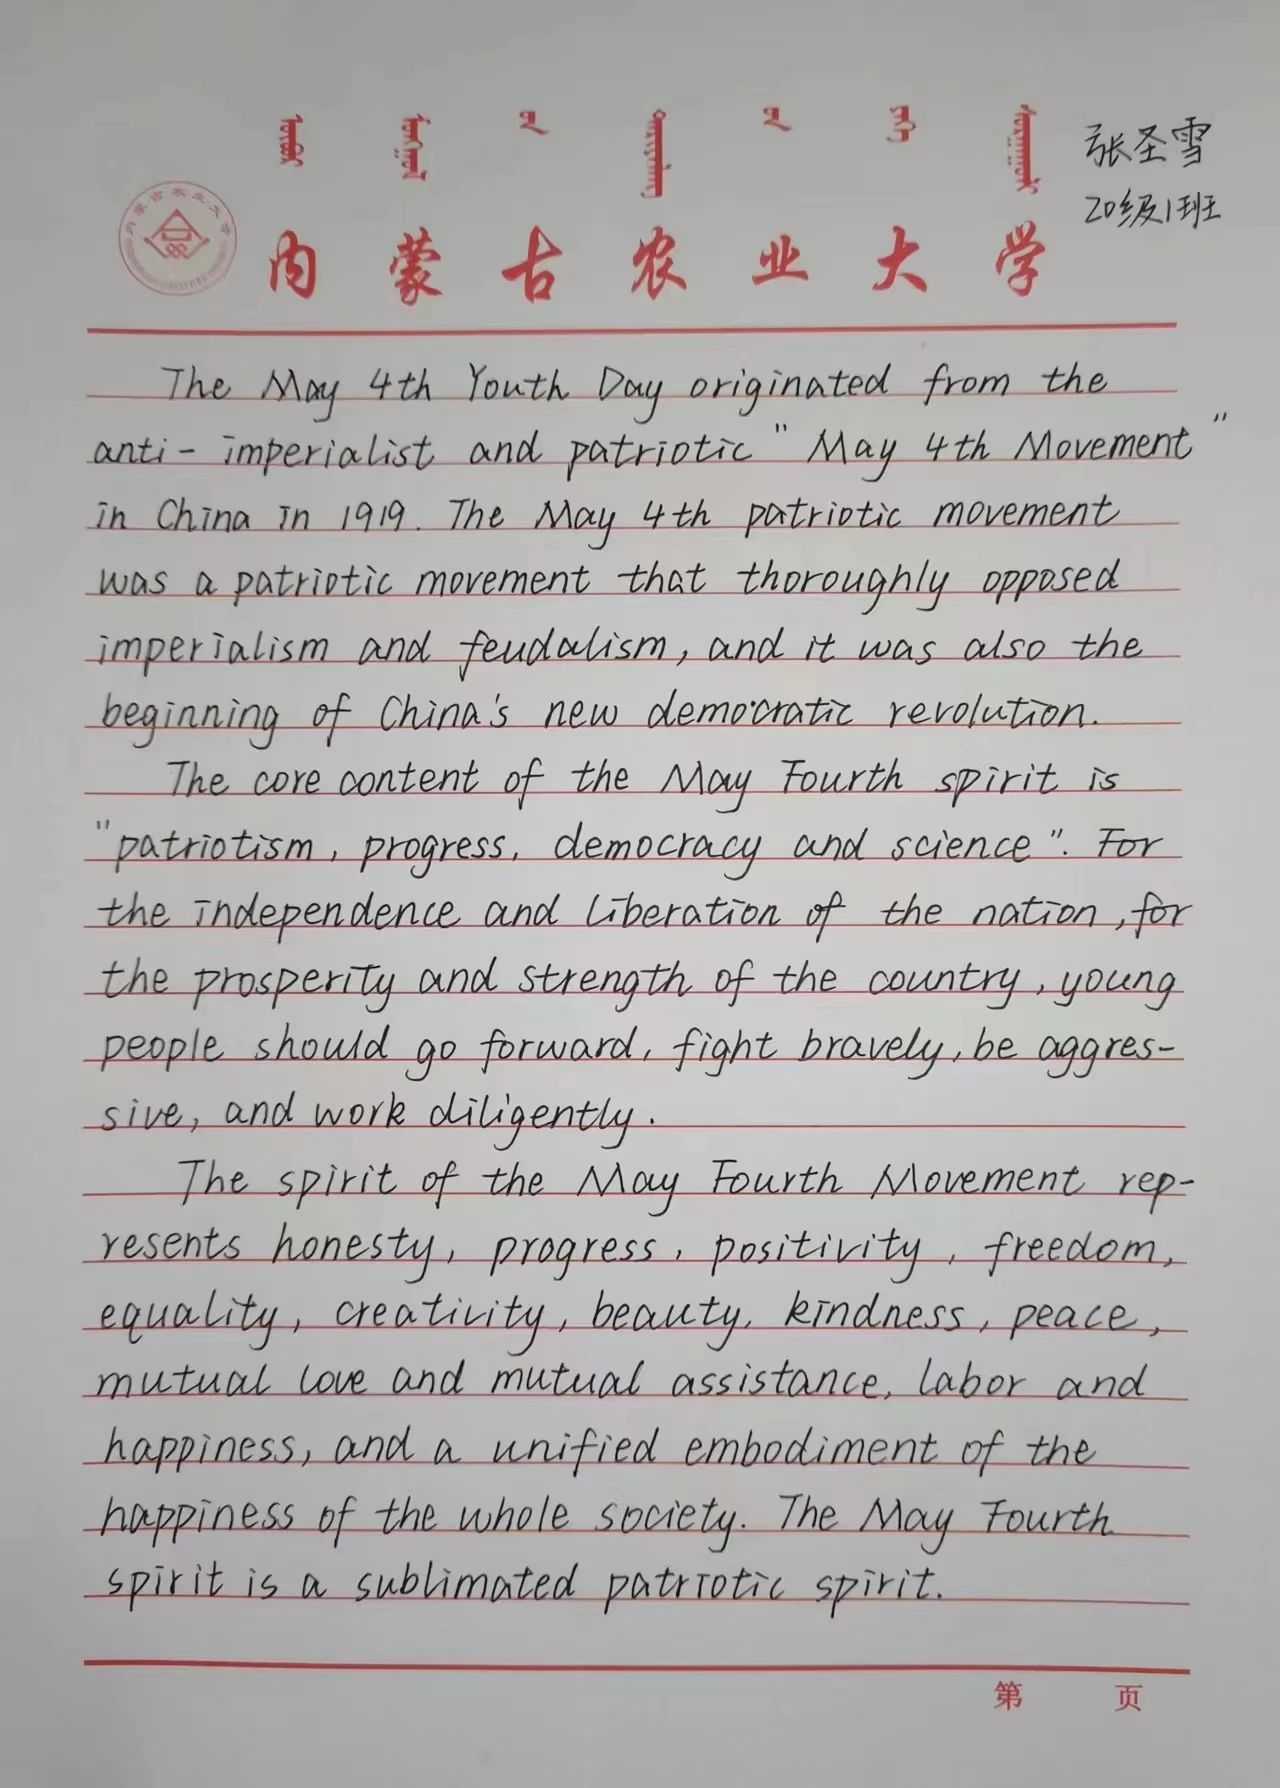 张圣雪
20级1班
内蒙古农业大学
The May 4th Youth Day originated from the
anti-imperialist and patriotic "May 4th Movement"
in China in 1919. The May 4th patriotic movement
was a patriotic movement that thoroughly opposed
imperialism and feudalism, and it was also the
beginning of China's new democratic revolution.
The core content of the May Fourth spirit is
"patriotism, progress, democracy and science". For
the independence and liberation of the nation, for
the prosperity and strength of the country, young
people should go forward, fight bravely, be aggres-
sive, and work diligently.
The spirit of the May Fourth Movement rep-
resents honesty, progress, positivity, freedom,
equality, creativity, beauty, kindness, peace,
mutual love and mutual assistance, labor and
happiness, and a unified embodiment of the
happiness of the whole society. The May Fourth
spirit is a sublimated patriotic spirit.
第 页